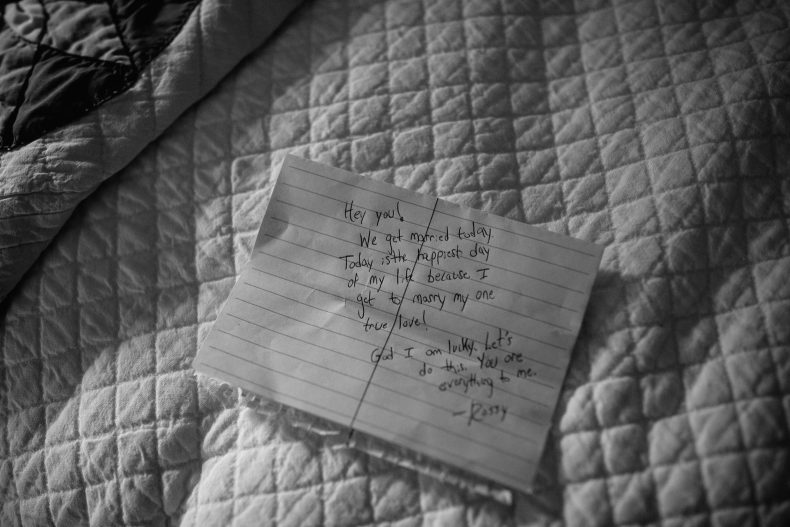 Hey you!
We get married today.
Today is the happiest day
of my life because I
get to marry my one
true love!
God I am lucky. Let's
do this. You are
everything to me.
— Rossy